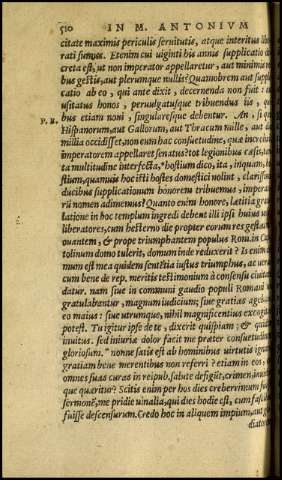 510 IN M. ANTONIUM
citate maximis periculis seruitutis, atque interitus libe-
rati sumus. Etenim cui uiginti his annis supplicatio de-
creta est, ut non imperator appellaretur, aut minimis re-
bus gestis, aut plerumque nullis? Quamobrem aut suppli-
catio ab eo, qui ante dixit, decernenda non fuit: a
usitatus honos, peruulgatusque tribuendus iis, qui
bus etiam noui, singularesque debentur. An, si qu
P. B. Hispanorum, aut Gallorum, aut Thracum mille, aut d
millia occidisset, non eum hac consuetudine, quæ increbuit
imperatorem appellaret senatus? tot legionibus cæsis, tan
ta multitudine interfecta, *hostium dico, ita, inquam, ho
stium, quamuis hoc isti hostes domestici nolint, clarissi
ducibus supplicationum honorem tribuemus, imperato
rū nomen adimemus? Quanto enim honore, lætitia gratu
latione in hoc templum ingredi debent illi ipsi huius urbis
liberatores, cum hesterno die propter eorum res gestas
ouantem, & prope triumphantem populus Rom. in Cap
tolium domo tulerit, domum inde reduxerit? Is enim d
mum est mea quidem sentētia iustus triumphus, ac ueru
cum bene de rep. meritis testimonium à consensu ciuitatis
datur. nam siue in communi gaudio populi Romani uni
gratulabantur, magnum iudicium; siue gratias agebant
eo maius: siue utrumque, nihil magnificentius excogitari
potest. Tu igitur ipse de te, dixerit quispiam: & quid
inuitus. sed iniuriæ dolor facit me præter consuetudinē
gloriosum. *nonne satis est ab hominibus uirtutis ignaris
gratiam bene merentibus non referri? etiam in eos, qui
omnes suas curas in reipub. salute defigūt, crimen, inuidia
que quæritur? Scitis enim per hos dies creberrimum fuisse
sermonē, me pridie uinalia, qui dies hodie est, cum fascib
fuisse descensurum. Credo hoc in aliquem impium, aut gla
diatorē